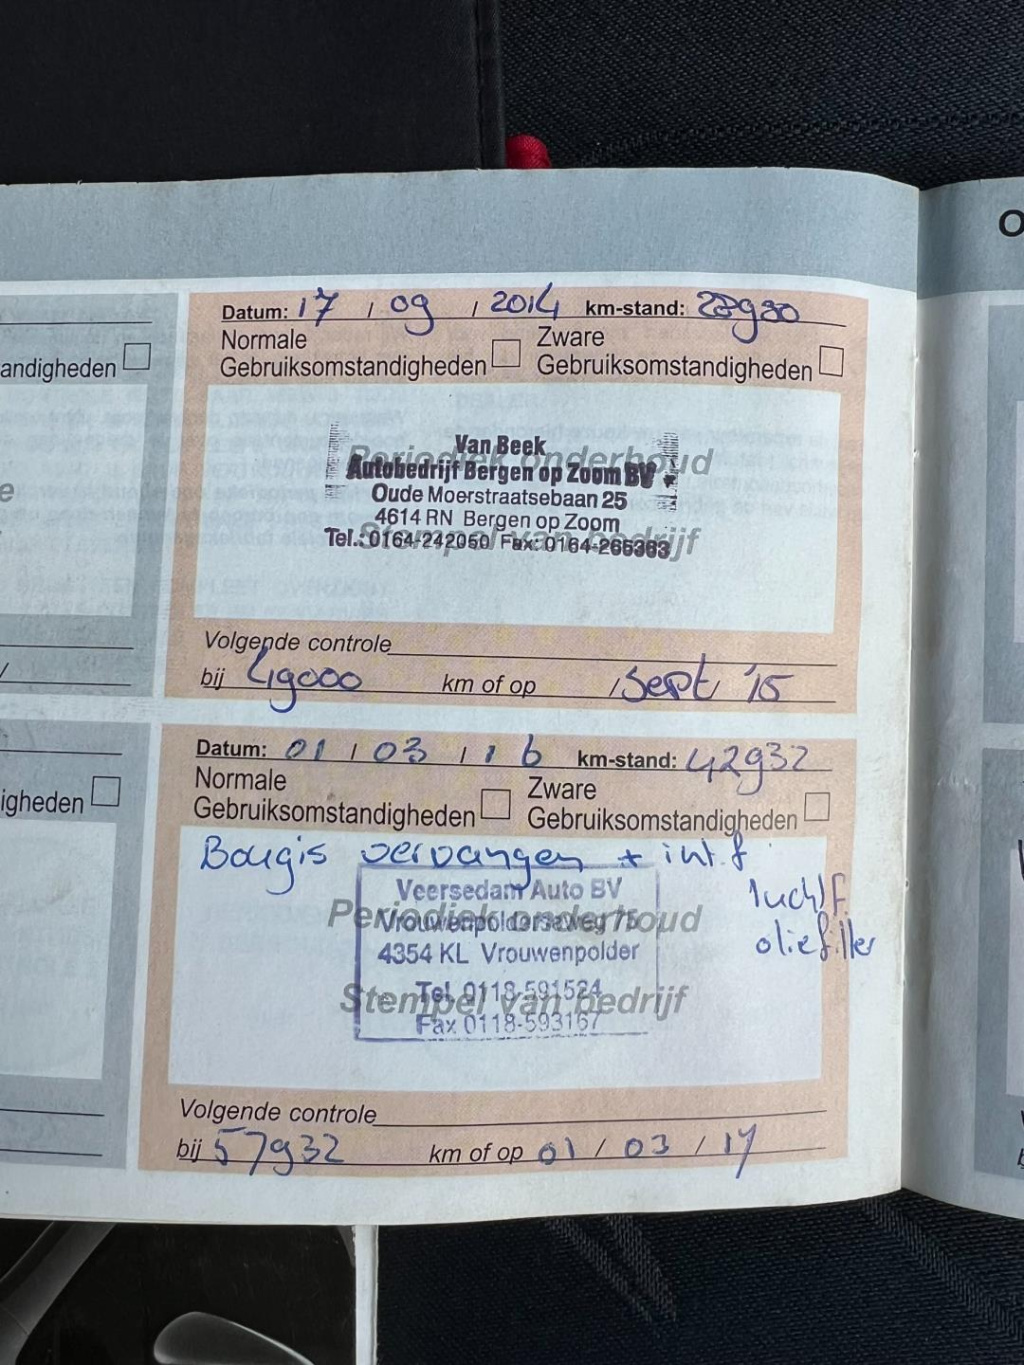 O
Datum: 17 / 09 / 2014 km-stand: 28980
Normale
Gebruiksomstandigheden
Zware
Gebruiksomstandigheden
andigheden
Periodiek onderhoud
Stempel van bedrijf
Van Beek
Autobedrijf Bergen op Zoom BV
Oude Moerstraatsebaan 25
4614 RN Bergen op Zoom
Tel.: 0164-242050/ Fax: 0164-265363
Volgende controle
bij 49000 km of op / Sept '15
Datum: 01 / 03 / 16 km-stand: 42932
Normale
Gebruiksomstandigheden
Zware
Gebruiksomstandigheden
igheden
Bougis vervangen + int.f
luchtf.
oliefilter
Periodiek onderhoud
Stempel van bedrijf
Veersedam Auto BV
Vrouwenpolderseweg 75
4354 KL Vrouwenpolder
Tel. 0118-591524
Fax 0118-593167
Volgende controle
bij 57932 km of op 01 / 03 / 17